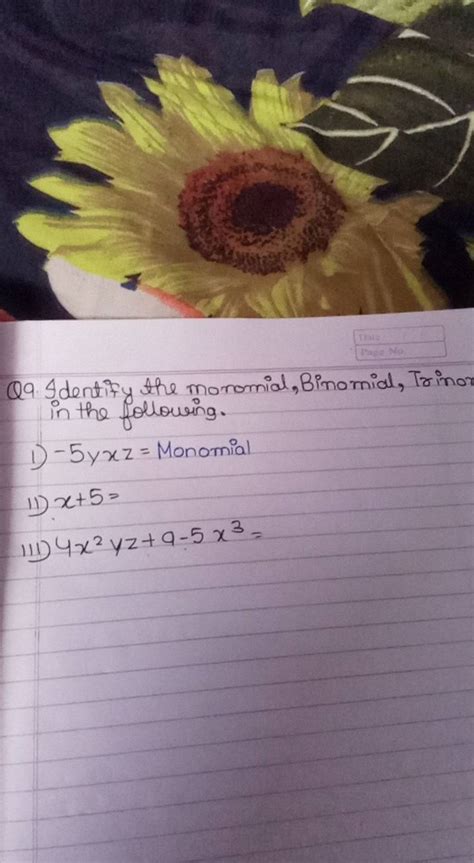 Page No.
Q9. Identify the monomial, Binomial, Trinom
in the following.
I) -5yxz = Monomial
II) x+5 =
III) 4x² yz + 9 - 5x³ =